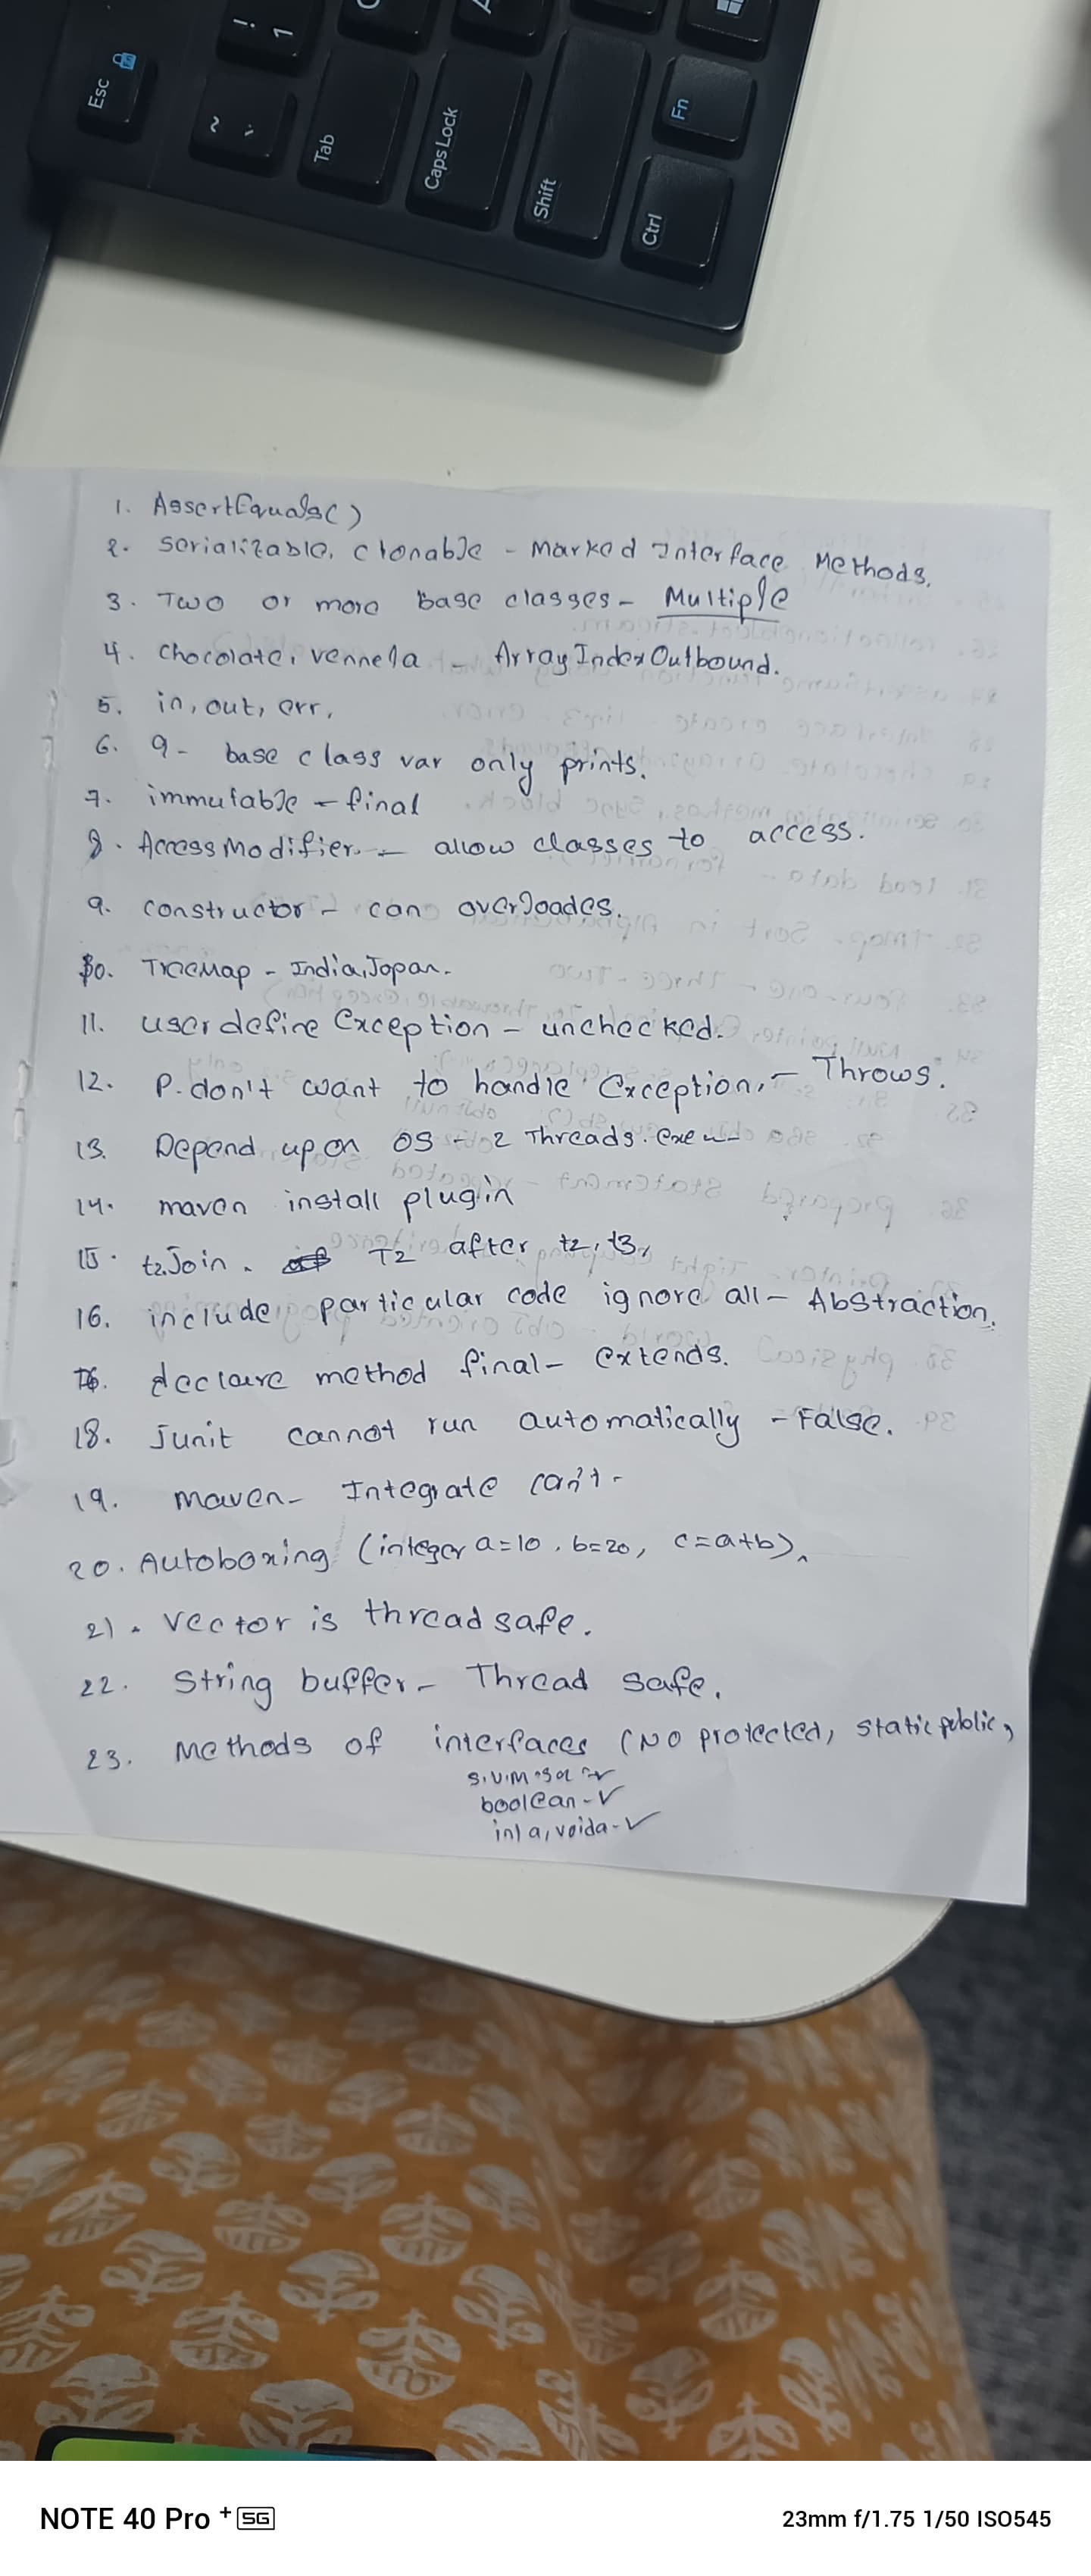 Esc
! 1
~ `
Tab
Caps Lock
Shift
Fn
Ctrl
1. AssertEquals()
2. Serializable, clonable - Marked Interface Methods.
3. Two or more base classes - Multiple
4. Chocolate, vennela - ArrayIndexOutbound.
5. in, out, err,
6. 9 - base class var only prints.
7. immutable - final
8. Access Modifier - allow classes to access.
9. constructor - can overloades.
10. TreeMap - India, Japan.
11. userdefine Exception - unchecked.
12. P. don't want to handle Exception, - Throws.
13. Depend upon OS - 2 Threads exeu
14. maven install plugin
15. t2.Join. T2 after t2, t3,
16. include particular code ignore all - Abstraction.
declare method final - extends.
18. junit cannot run automatically - False.
19. maven - Integrate can't -
20. Autoboxing (integer a=10, b=20, c=a+b).
21. Vector is thread safe.
22. String buffer - Thread safe.
23. Methods of interfaces (No protected, static public,
boolean - ✓
int a, void a - ✓
NOTE 40 Pro+ 5G
23mm f/1.75 1/50 ISO545